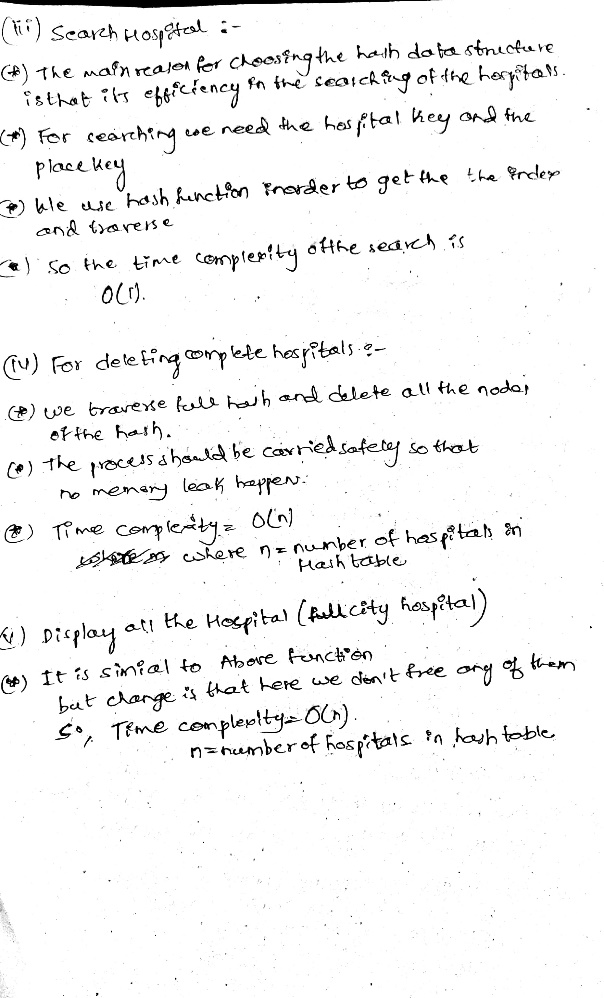 (iii) Search Hospital :-
(*) The main reason for choosing the hash data structure
is that its efficiency in the searching of the hospitals.
(*) For searching we need the hospital key and the
place key
(*) We use hash function inorder to get the the index
and traverse
(*) So the time complexity of the search is
O(1).
(iv) For deleting complete hospitals :-
(*) we traverse full hash and delete all the nodes
of the hash.
(*) the process should be carried safely so that
no memory leak happen.
(*) Time complexity = O(n)
where n = number of hospitals in
Hash table
v) Display all the Hospital (full city hospital)
(*) It is simial to Above function
but change is that here we don't free any of them
So, Time complexity = O(n).
n = number of hospitals in hash table